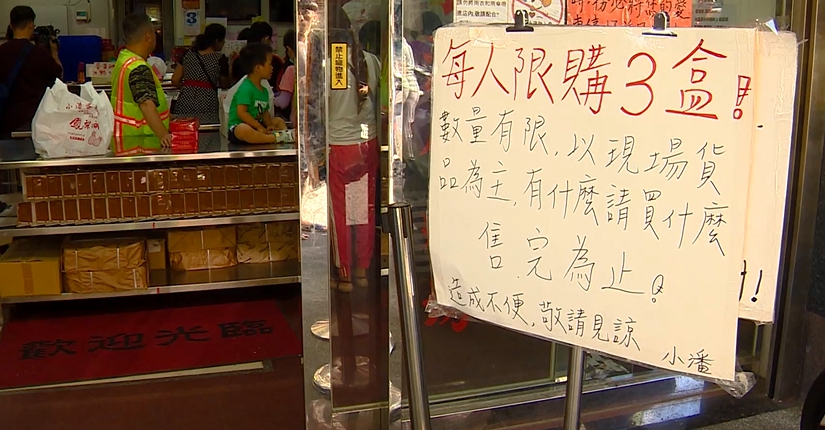 每人限購3盒!
數量有限,以現場貨
品為主,有什麼請買什麼
售完為止。
造成不便,敬請見諒
小潘
禁止寵物進入
歡迎光臨
小潘